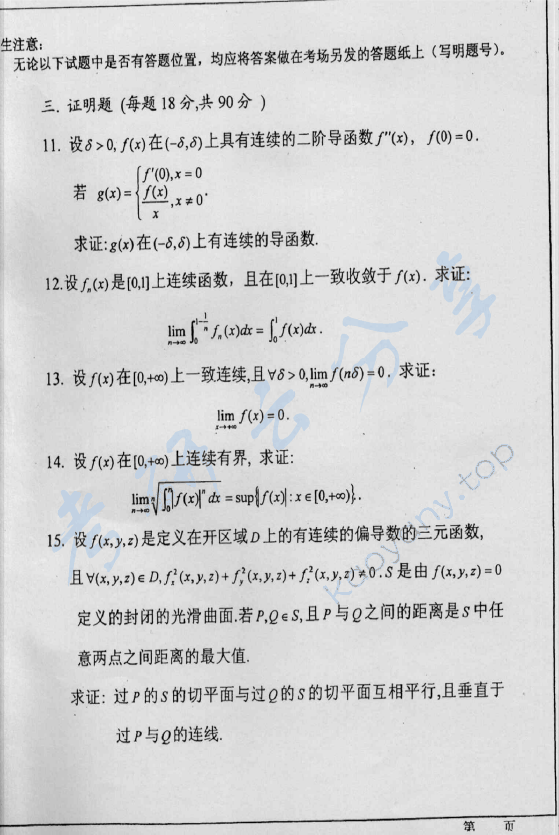 生注意：
无论以下试题中是否有答题位置，均应将答案做在考场另发的答题纸上（写明题号）。
三. 证明题 (每题 18 分,共 90 分 )
11. 设 δ>0, f(x) 在 (-δ,δ) 上具有连续的二阶导函数 f″(x)， f(0)=0.
若 g(x)={f′(0),x=0
f(x)/x,x≠0.
求证:g(x)在(-δ,δ)上有连续的导函数.
12.设 f_n(x) 是[0,1]上连续函数，且在[0,1]上一致收敛于 f(x). 求证:
lim_{n→∞} ∫_0^{1-1/n} f_n(x)dx = ∫_0^1 f(x)dx .
13. 设 f(x) 在[0,+∞)上一致连续,且 ∀δ>0, lim_{n→∞} f(nδ)=0. 求证:
lim_{x→+∞} f(x)=0.
14. 设 f(x) 在[0,+∞)上连续有界, 求证:
lim_{n→∞} ⁿ√(∫_0^n |f(x)|^n dx) = sup{|f(x)|: x∈[0,+∞)}.
15. 设 f(x,y,z) 是定义在开区域 D 上的有连续的偏导数的三元函数,
且 ∀(x,y,z)∈D, f_x²(x,y,z)+f_y²(x,y,z)+f_z²(x,y,z)≠0. S 是由 f(x,y,z)=0
定义的封闭的光滑曲面.若 P,Q∈S,且 P 与 Q 之间的距离是 S 中任
意两点之间距离的最大值.
求证: 过 P 的 S 的切平面与过 Q 的 S 的切平面互相平行,且垂直于
过 P 与 Q 的连线.
第 页
kaoyany.top